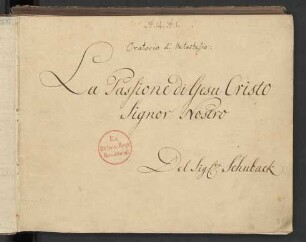 Oratorio di Metastasio.
La Passione di Gesu Cristo
Signor Nostro
Del Sigre Schuback